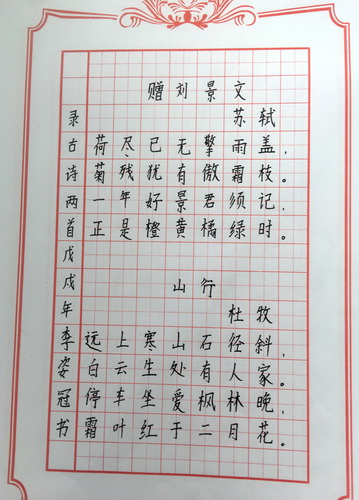 赠刘景文
苏轼
荷尽已无擎雨盖，
菊残犹有傲霜枝。
一年好景君须记，
正是橙黄橘绿时。
山行
杜牧
远上寒山石径斜，
白云生处有人家。
停车坐爱枫林晚，
霜叶红于二月花。
录古诗两首戊戌年李姿冠书